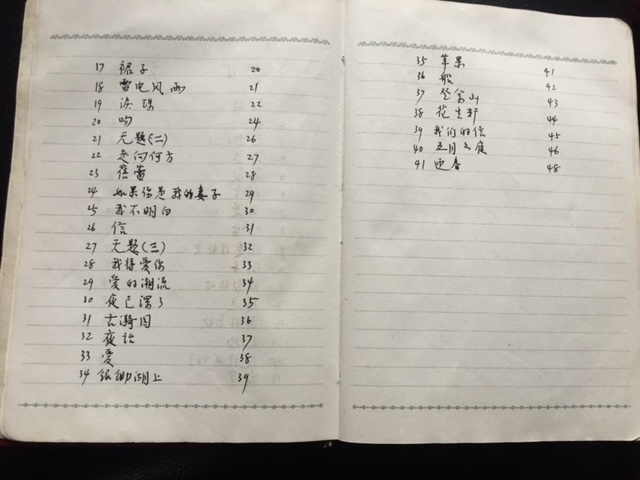 17 裙子 20
18 雷电风雨 21
19 泪珠 22
20 吻 24
21 无题(二) 26
22 走向何方 27
23 蓓蕾 28
24 如果你是我的妻子 29
25 我不明白 30
26 信 31
27 无题(三) 32
28 我待爱你 33
29 爱的潮流 34
30 夜已深了 35
31 古漪园 36
32 夜话 37
33 爱 38
34 湖上 39
35 苹果 41
36 船 42
37 登金山 43
38 花生邦 44
39 我们的信 45
40 五月之夜 46
41 迎春 48